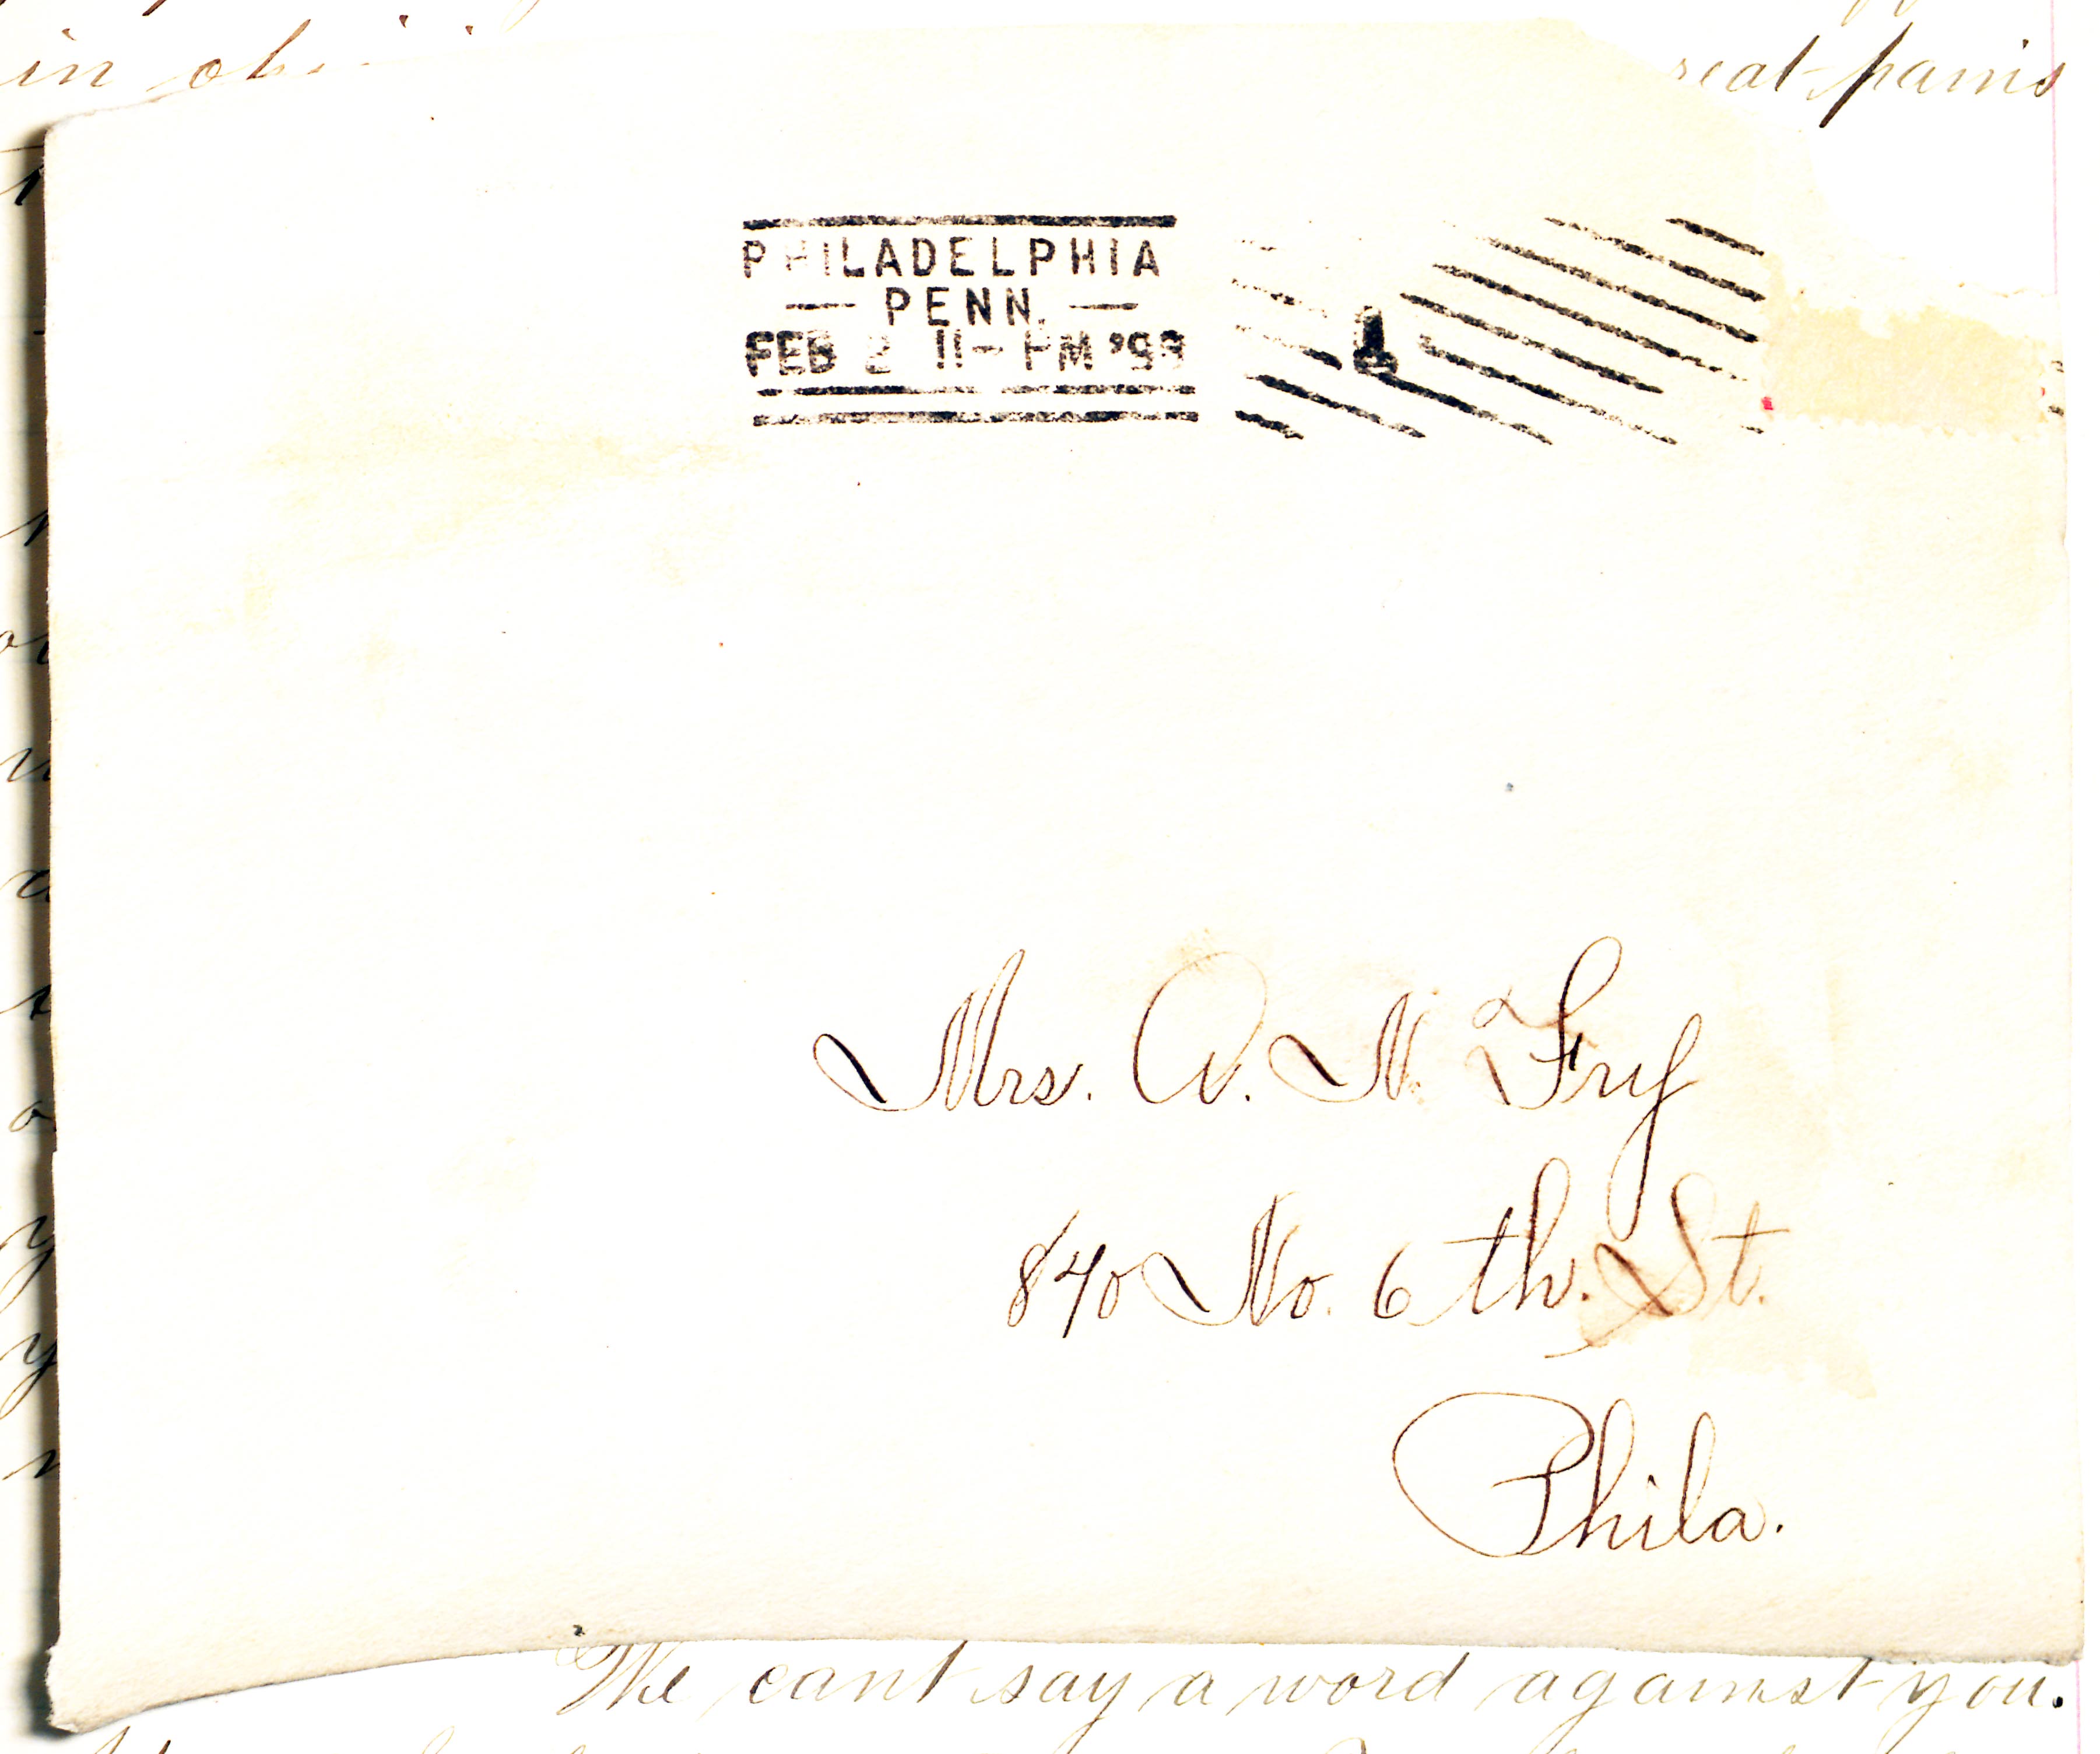 in
pains
PHILADELPHIA
— PENN. —
FEB 2 11- PM '99
1
Mrs. A. N. Fry
840 No. 6 th. St.
Phila.
We cant say a word against you.